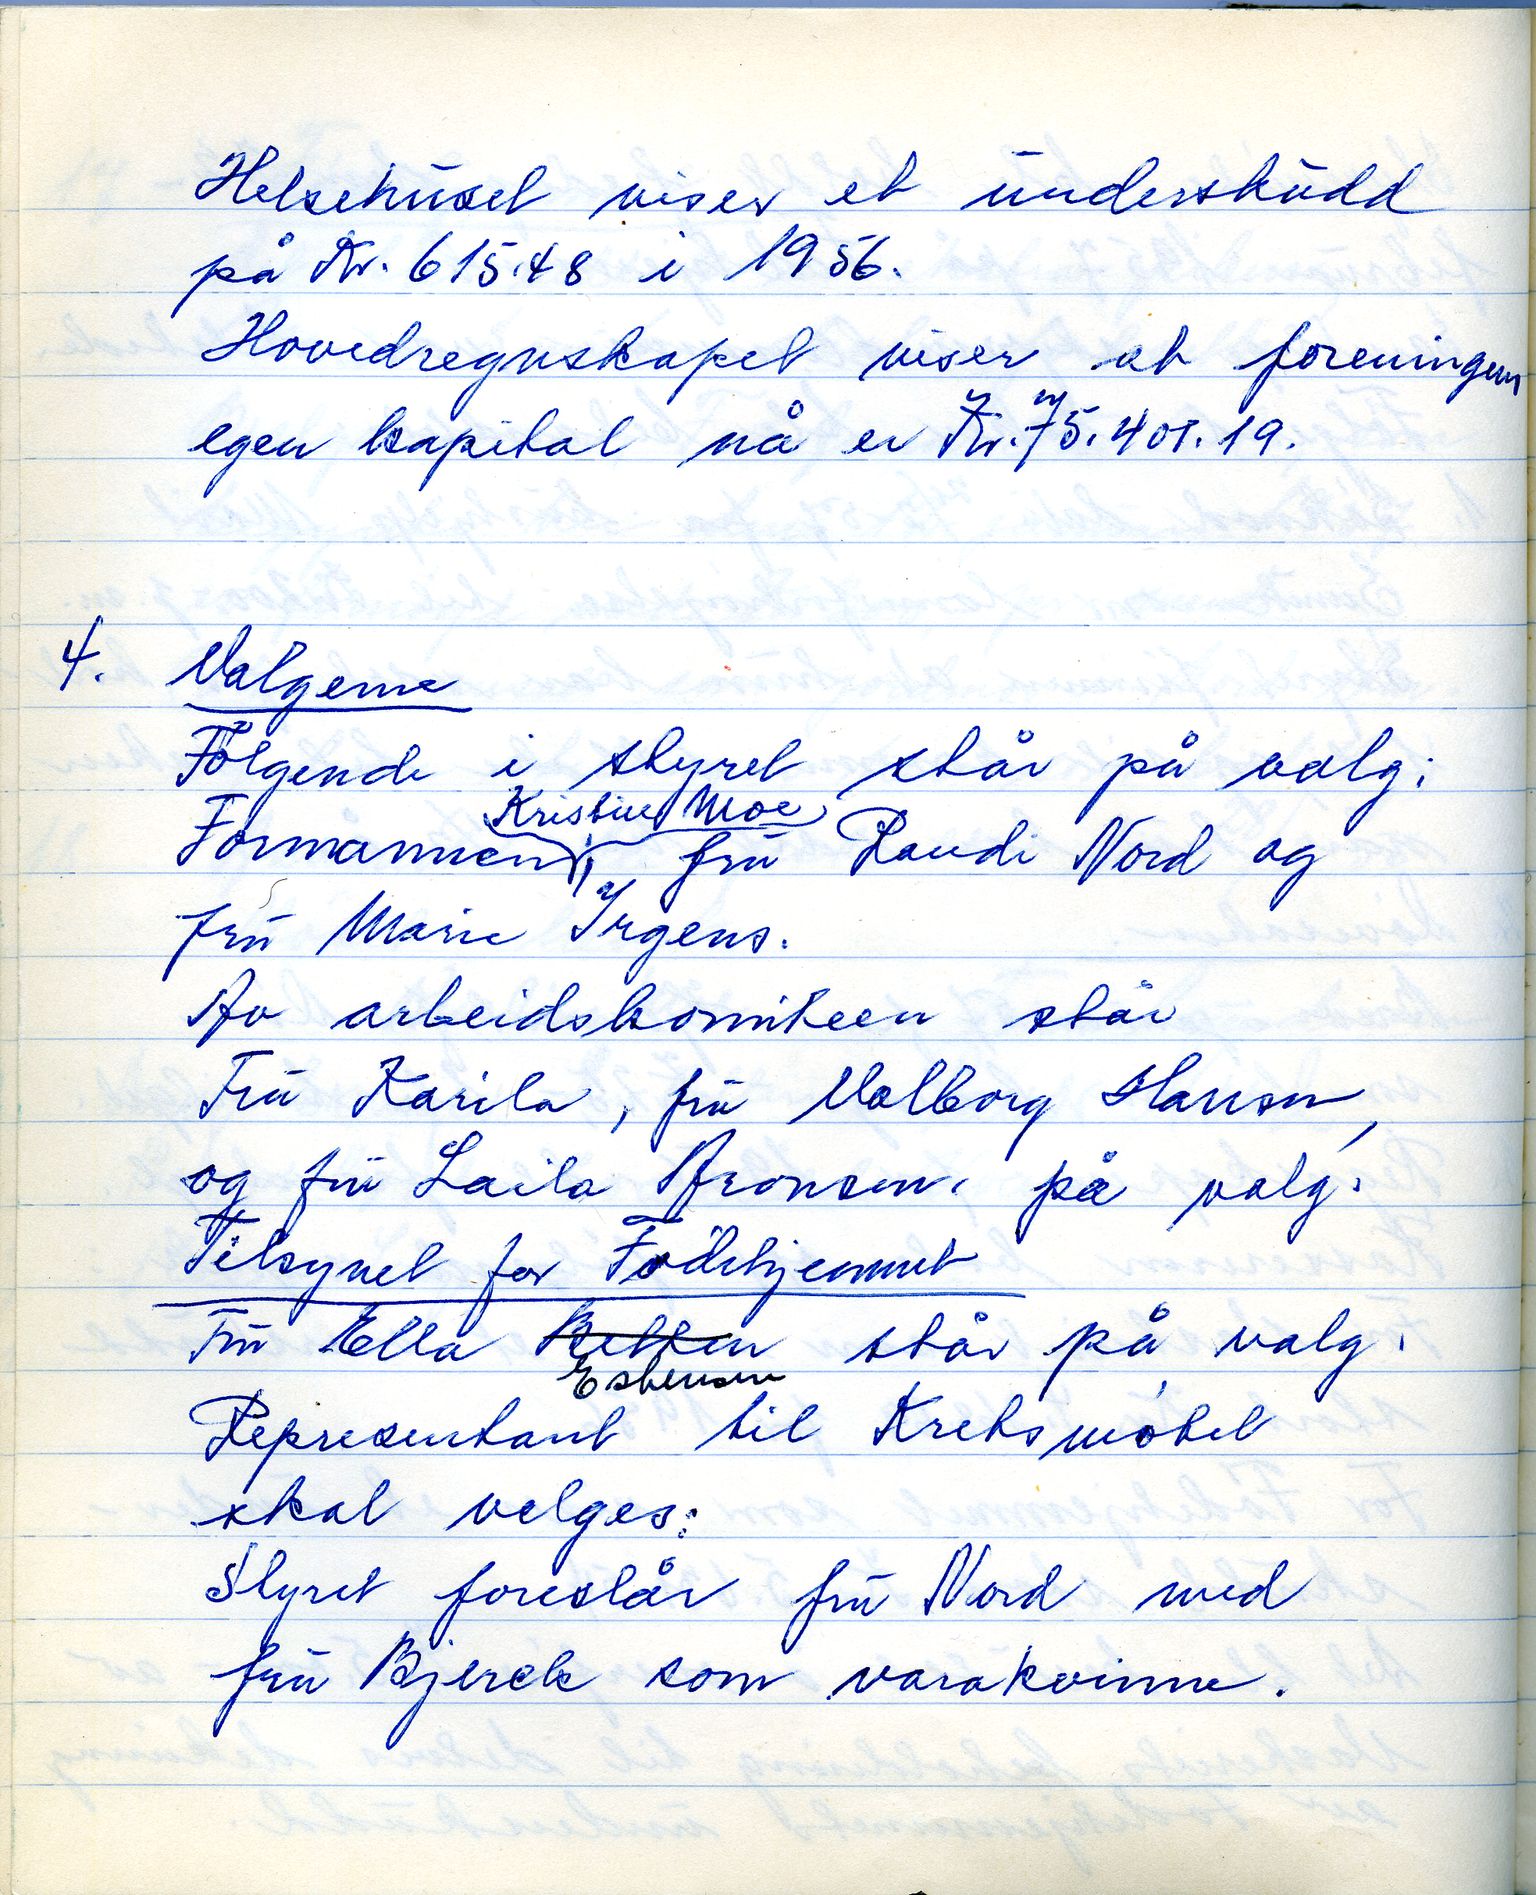 Helsehuset viser et underskudd
på Kr. 615.48 i 1956.
Hovedregnskapet viser at foreningens
egen kapital nå er Kr. 75.401.19.
4. Valgene
Følgende i styret står på valg:
Kristine Moe
Formannen, fru Randi Nord og
fru Marie Irgens.
Av arbeidskomiteen står
Fru Karila, fru Valborg Hansen,
og fru Laila Aronsen, på valg.
Tilsynet for Fødehjemmet
Fru Ella Betten står på valg.
Esbensen
Representant til Kretsmøtet
skal velges:
Styret foreslår fru Nord med
fru Bjerck som varakvinne.